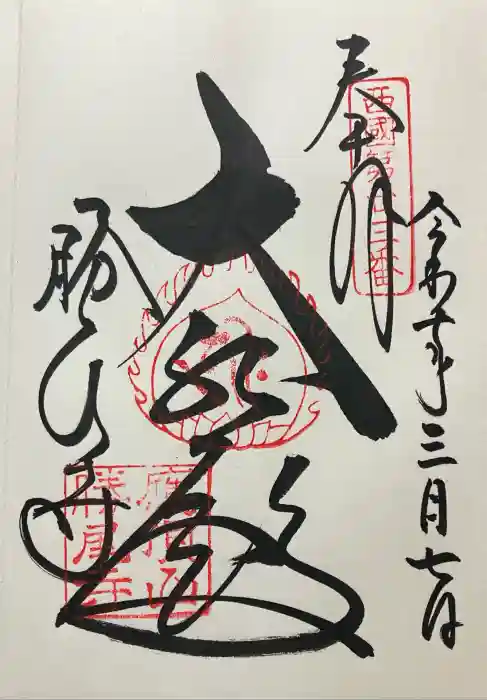 令和年三月七日
奉拝
西國第廿三番
大悲殿
勝尾寺
應頂山
勝尾寺